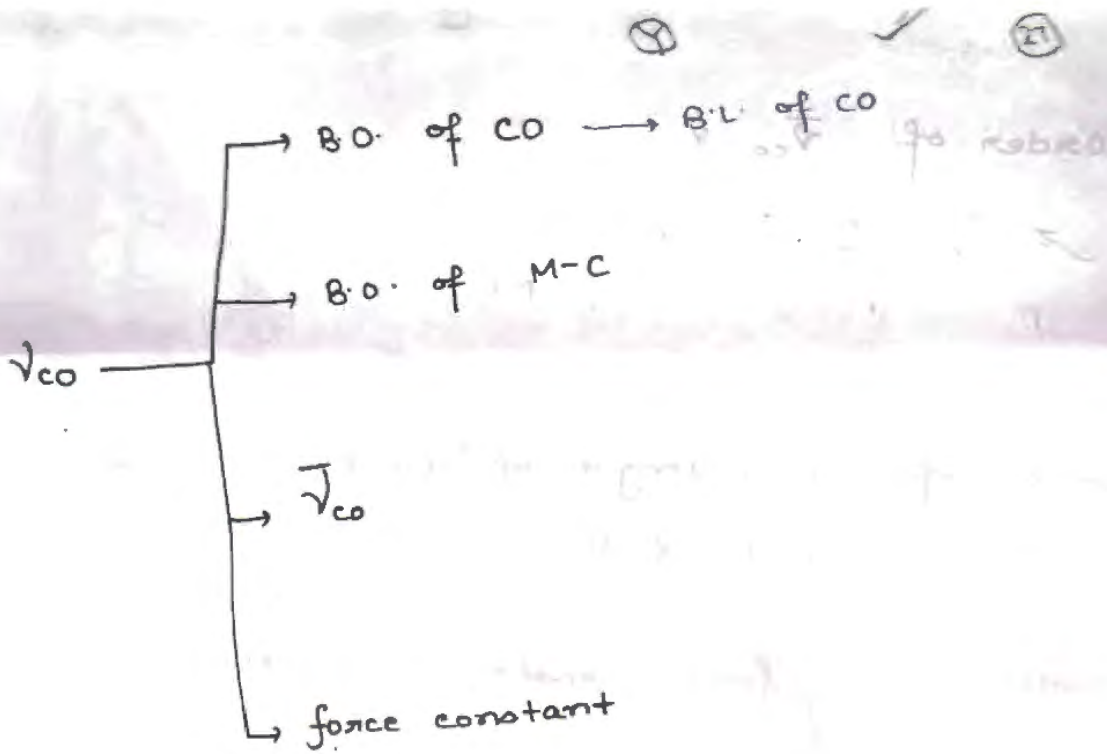 Y ✓ 27
B.O. of CO → B.L. of CO
B.O. of M-C
ν_CO
ν̅_CO
force constant